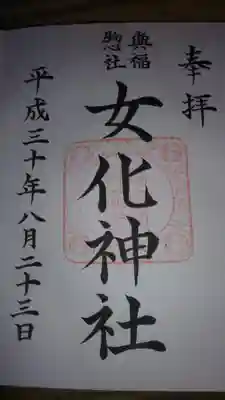 奉拝
女化神社
平成三十年八月二十三日